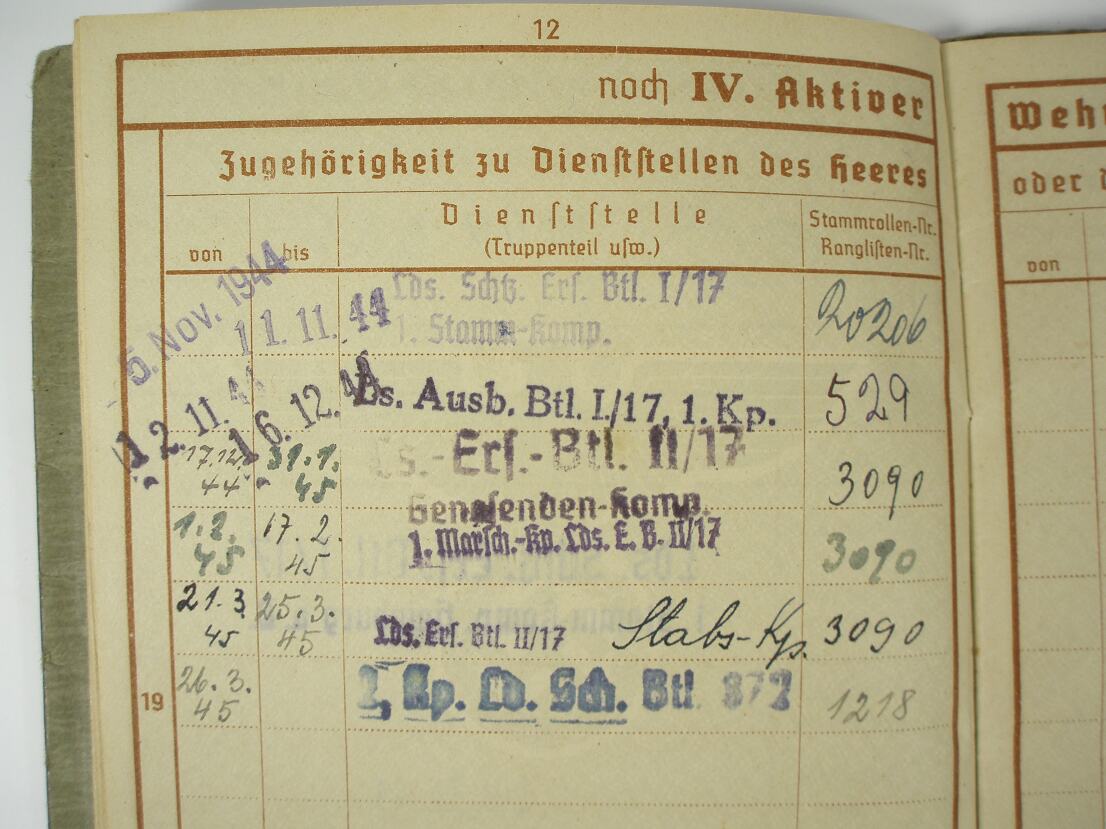 12
noch IV. Aktiver
Zugehörigkeit zu Dienststellen des Heeres
von bis Dienststelle (Truppenteil usw.) Stammrollen-Nr. Ranglisten-Nr.
5. Nov. 1944 11.11.44 Lds. Schtz. Ers. Btl. I/17 20206
1. Stamm-Komp.
12.11.44 16.12.44 Ls. Ausb. Btl. I./17, 1. Kp. 529
17.12. 44 31.1. 45 Ls.-Ers.-Btl. II/17 3090
Genesenden-Komp.
1.2. 45 17.2. 45 1. Marsch.-Kp. Lds. E. B. II/17 3090
21.3. 45 25.3. 45 Lds. Ers. Btl. II/17 Stabs-Kp. 3090
19 26.3. 45 Kp. Ld. Sch. Btl 1218
Weh
oder
von